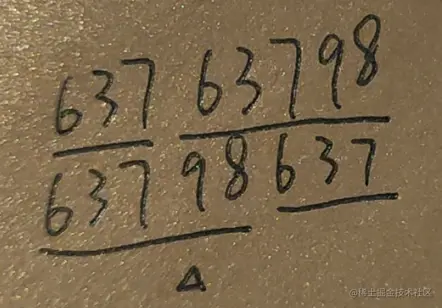 637 63798
63798637
Δ
@稀土掘金技术社区